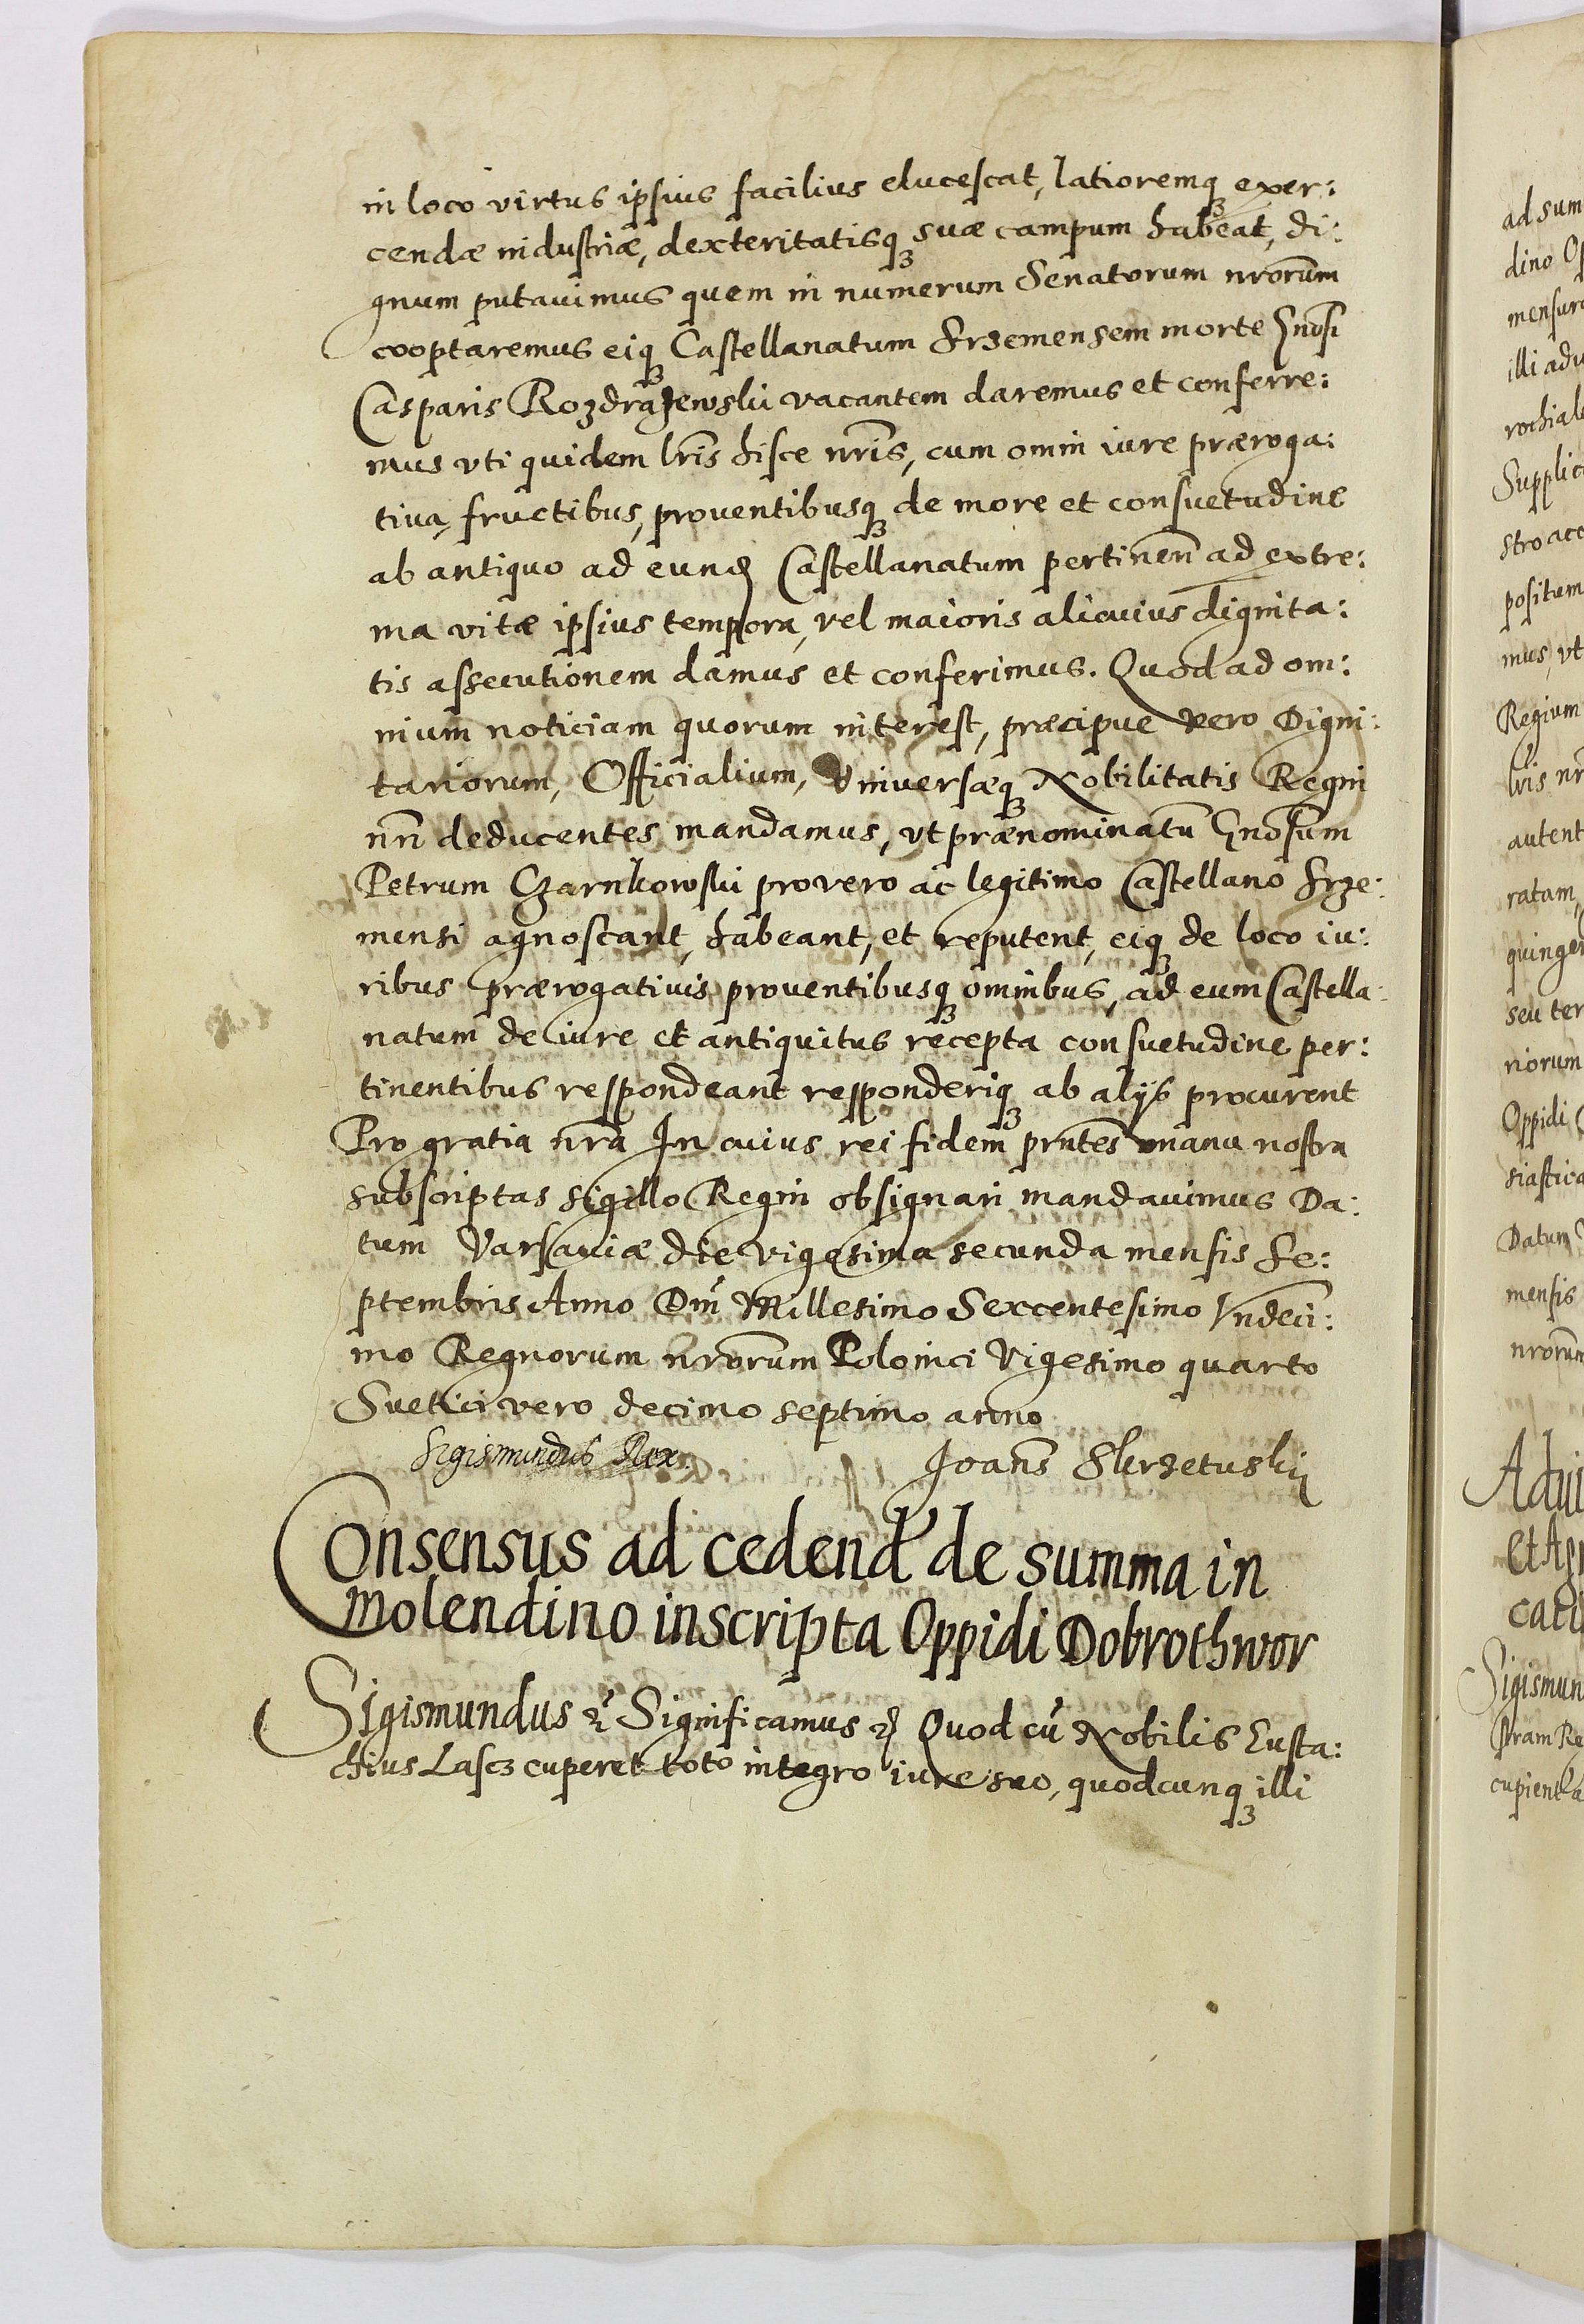 in loco virtus ipsius facilius elucescat, latioremq₃ exer:
cendæ industriæ, dexteritatisq₃ suæ campum habeat, di:
gnum putavimus quem in numerum Senatorum nrorum
cooptaremus eiq₃ Castellanatum Srzemensem morte Gnosi
Casparis Rozdrażewski vacantem daremus et conferre:
mus vti quidem lris hisce nris, cum omni iure præroga:
tiva, fructibus, proventibusq₃ de more et consuetudine
ab antiquo ad eund Castellanatum pertinen ad extre:
ma vitæ ipsius tempora, vel maioris alicuius dignita:
tis assecutionem damus et conferimus. Quod ad om:
nium noticiam quorum interest, præcipue vero Digni:
tariorum, Officialium, Vniversæq₃ Nobilitatis Regni
nri deducentes mandamus, vt prænominatu Gnosum
Petrum Czarnkowski pro vero ac legitimo Castellano Srze:
mensi agnoscant, habeant, et reputent, eiq₃ de loco iu:
ribus prærogativis proventibusq₃ omnibus, ad eum Castella:
natum de iure et antiquitus recepta consuetudine per:
tinentibus respondeant responderiq₃ ab alijs procurent
Pro gratia nra In cuius rei fidem prntes manu nostra
subscriptas sigillo Regni obsignari mandavimus Da:
tum Varsaviæ die vigesima secunda mensis Se:
ptembris Anno Dni Millesimo Sexcentesimo Vndeci:
mo Regnorum nrorum Polonici Vigesimo quarto
Suetici vero decimo septimo anno
Sigismundus Rex.
Joans Skrzetuskij
Consensus ad cedend de summa in
molendino inscripta Oppidi Dobrothwor
Sigismundus Significamus Quod cu Nobilis Eusta:
chius Lascz cuperet toto integro iure suo, quodcunq₃ illi
ad sum
dino Op
mensur
illi adv
rochial
Supplic
stro acc
positum
mus, vt
Regium
lris nr
autent
ratam,
quinger
seu ter
niorum
Oppidi
siastica
Datum
mensis
nrorum
Advi
et Agn
cati
Sigismun
stram Re
cupient